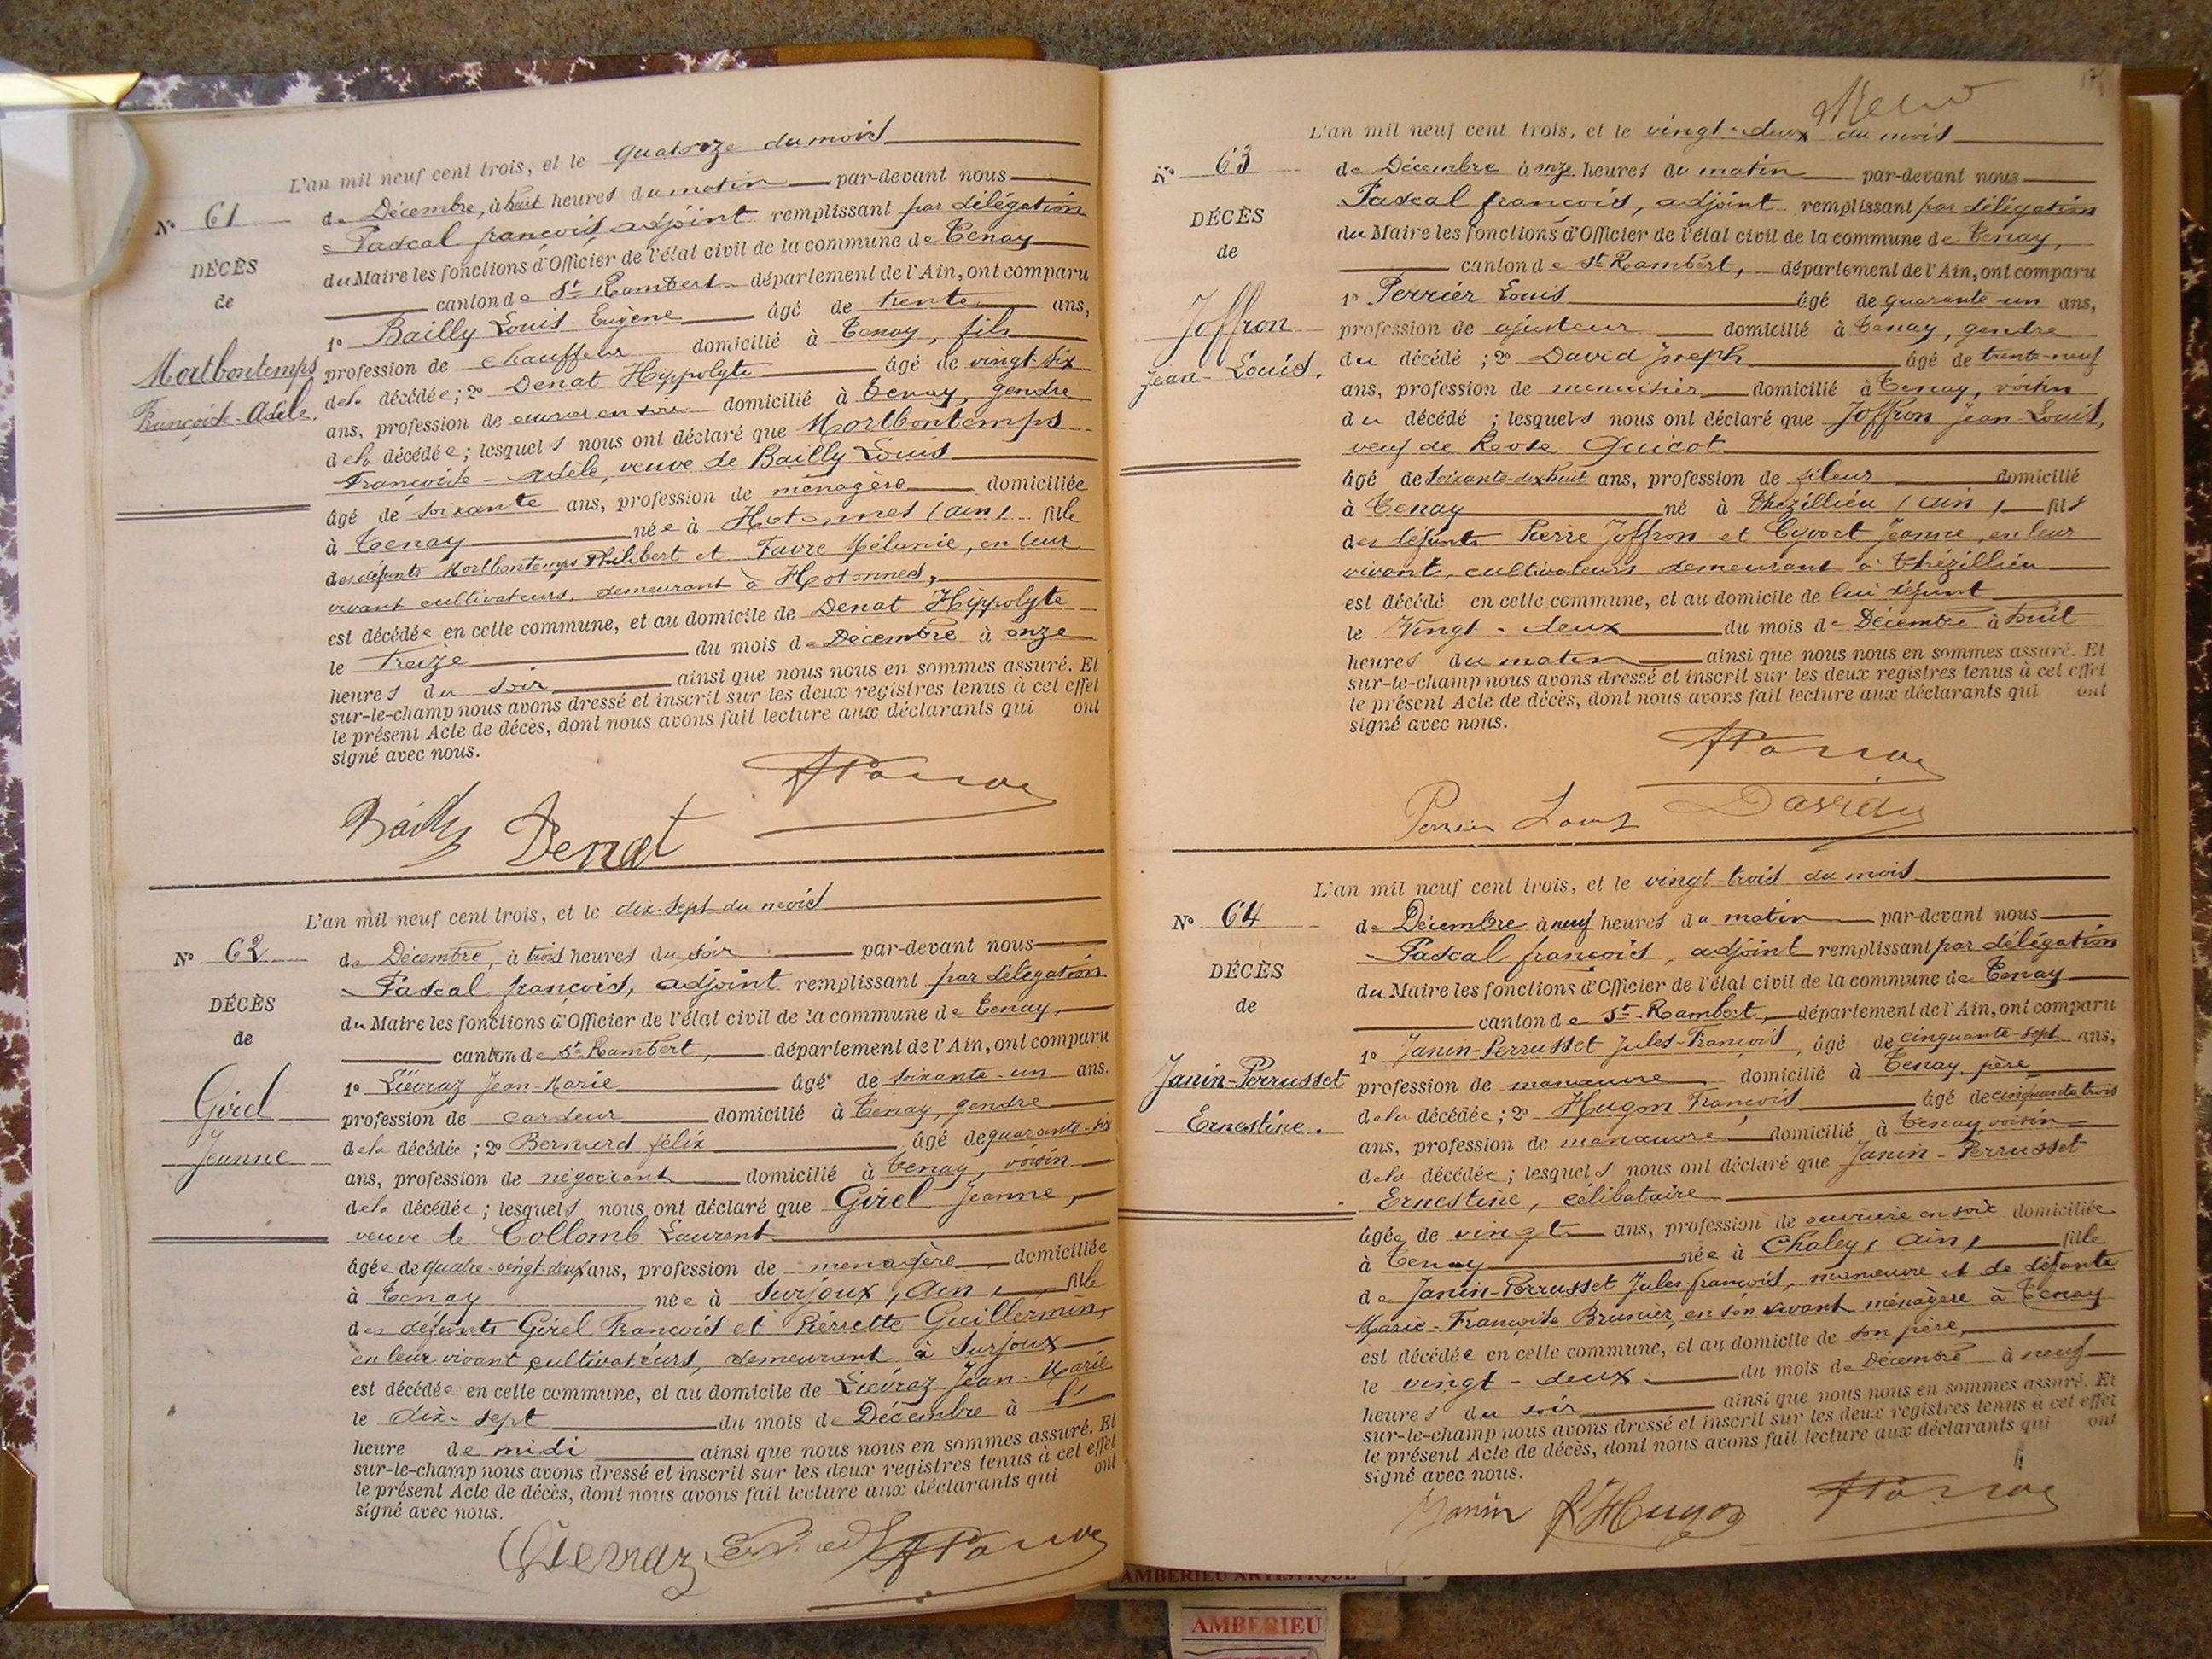 L'an mil neuf cent trois, et le quatorze du mois
N° 61
de Décembre, à huit heures du matin par-devant nous
Pascal françois, adjoint remplissant par délégation
DÉCÈS
du Maire les fonctions d'Officier de l'état civil de la commune de Tenay
de
canton de St Rambert département de l'Ain, ont comparu
1° Bailly Louis Eugène âgé de trente ans,
Mortbontemps
profession de chauffeur domicilié à Tenay, fils
Françoise-Adèle.
de la décédée; 2° Denat Hippolyte âgé de vingt-six
ans, profession de ouvrier en soie domicilié à Tenay, gendre
de la décédée; lesquels nous ont déclaré que Mortbontemps
Françoise-Adèle, veuve de Bailly Louis
âgé de soixante ans, profession de ménagère domiciliée
à Tenay née à Hotonnes (Ain) fille
des défunts Mortbontemps Philibert et Favre Mélanie, en leur
vivant cultivateurs, demeurant à Hotonnes,
est décédée en cette commune, et au domicile de Denat Hippolyte
le Treize du mois de Décembre à onze
heures du soir ainsi que nous nous en sommes assuré. Et
sur-le-champ nous avons dressé et inscrit sur les deux registres tenus à cet effet
le présent Acte de décès, dont nous avons fait lecture aux déclarants qui ont
signé avec nous.
Bailly Denat
L'an mil neuf cent trois, et le dix-sept du mois
N° 62
de Décembre, à trois heures du soir par-devant nous
Pascal françois, adjoint remplissant par délégation
DÉCÈS
du Maire les fonctions d'Officier de l'état civil de la commune de Tenay,
de
canton de St Rambert, département de l'Ain, ont comparu
Girel
1° Liévraz Jean-Marie âgé de soixante-un ans.
profession de cardeur domicilié à Tenay, gendre
Jeanne
de la décédée; 2° Bernard félix âgé de quarante-six
ans, profession de négociant domicilié à Tenay, voisin
de la décédée; lesquels nous ont déclaré que Girel Jeanne,
veuve de Collomb Laurent
âgée de quatre-vingt-deux ans, profession de ménagère domiciliée
à Tenay née à Surjoux, (Ain), fille
des défunts Girel François et Pierrette Guillermin,
en leur vivant cultivateurs, demeurant à Surjoux
est décédée en cette commune, et au domicile de Liévraz Jean-Marie
le dix-sept du mois de Décembre à l'
heure de midi ainsi que nous nous en sommes assuré. Et
sur-le-champ nous avons dressé et inscrit sur les deux registres tenus à cet effet
le présent Acte de décès, dont nous avons fait lecture aux déclarants qui ont
signé avec nous.
L'an mil neuf cent trois, et le vingt-deux du mois
N° 63
de Décembre à onze heures du matin par-devant nous
Pascal françois, adjoint remplissant par délégation
DÉCÈS
du Maire les fonctions d'Officier de l'état civil de la commune de Tenay,
de
canton de St Rambert, département de l'Ain, ont comparu
1° Perrier Louis âgé de quarante-un ans,
Joffron
profession de ajusteur domicilié à Tenay, gendre
Jean-Louis.
du décédé; 2° David Joseph âgé de trente-neuf
ans, profession de menuisier domicilié à Tenay, voisin
du décédé; lesquels nous ont déclaré que Joffron Jean-Louis,
veuf de Rose Guicot
âgé de soixante-dix-huit ans, profession de fileur domicilié
à Tenay né à Thézillieu (Ain) fils
des défunts Pierre Joffron et Cyvoct Jeanne, en leur
vivant, cultivateurs demeurant à Thézillieu
est décédé en cette commune, et au domicile de lui défunt
le Vingt-deux du mois de Décembre à huit
heures du matin ainsi que nous nous en sommes assuré. Et
sur-le-champ nous avons dressé et inscrit sur les deux registres tenus à cet effet
le présent Acte de décès, dont nous avons fait lecture aux déclarants qui ont
signé avec nous.
Perrier Louis David
L'an mil neuf cent trois, et le vingt-trois du mois
N° 64
de Décembre à neuf heures du matin par-devant nous
Pascal françois, adjoint remplissant par délégation
DÉCÈS
du Maire les fonctions d'Officier de l'état civil de la commune de Tenay
de
canton de St-Rambert, département de l'Ain, ont comparu
1° Janin-Perrusset Jules-François, âgé de cinquante-sept ans,
Janin-Perrusset
profession de manœuvre domicilié à Tenay, père
Ernestine.
de la décédée; 2° Hugon François âgé de cinquante trois
ans, profession de manœuvre domicilié à Tenay voisin
de la décédée; lesquels nous ont déclaré que Janin-Perrusset
Ernestine, célibataire
âgée de vingt ans, profession de ouvrière en soie domiciliée
à Tenay née à Chaley, (Ain), fille
de Janin-Perrusset Jules-françois, manœuvre et de défunte
Marie-Françoise Brunier, en son vivant ménagère à Tenay
est décédée en cette commune, et au domicile de son père,
le vingt-deux du mois de Décembre à neuf
heures du soir ainsi que nous nous en sommes assuré. Et
sur-le-champ nous avons dressé et inscrit sur les deux registres tenus à cet effet
le présent Acte de décès, dont nous avons fait lecture aux déclarants qui ont
signé avec nous.
Janin f. Hugon
AMBERIEU ARTISTIQUE
AMBERIEU